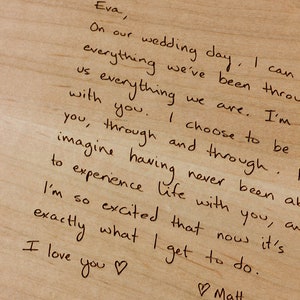 Eva,
On our wedding day, I can
everything we've been throu
us everything we are. I'm
with you. I choose to be
you, through and through. I
imagine having never been ab
to experience life with you, an
I'm so excited that now it's
exactly what I get to do.
I love you ♡
♡ Matt